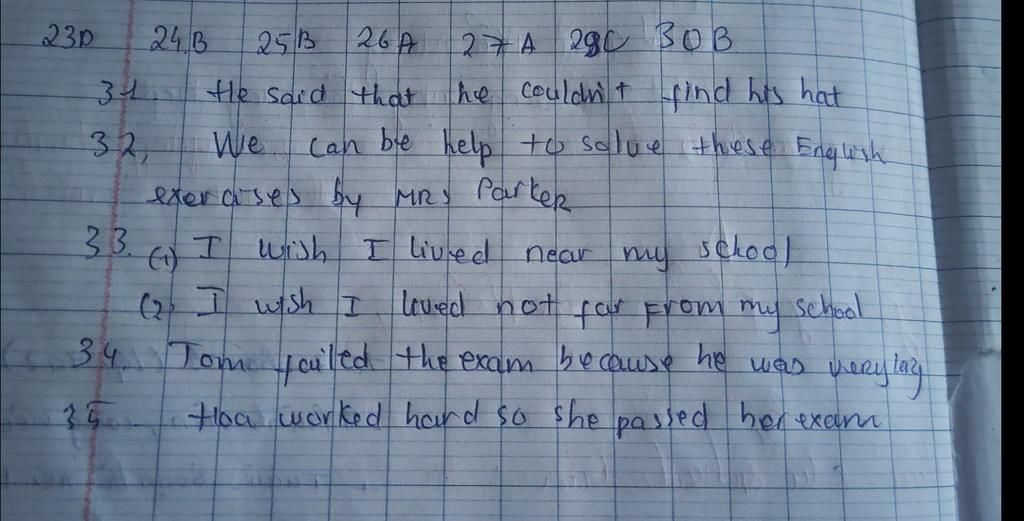 23D 24B 25B 26A 27A 29C 30B
31. He said that he couldn't find his hat
32, We can be help to solve these English
exercises by MRS Parker
33. (1) I wish I lived near my school
(2) I wish I lived not far From my school
34. Tom failed the exam because he was very lazy
35 Hoa worked hard so she passed her exam